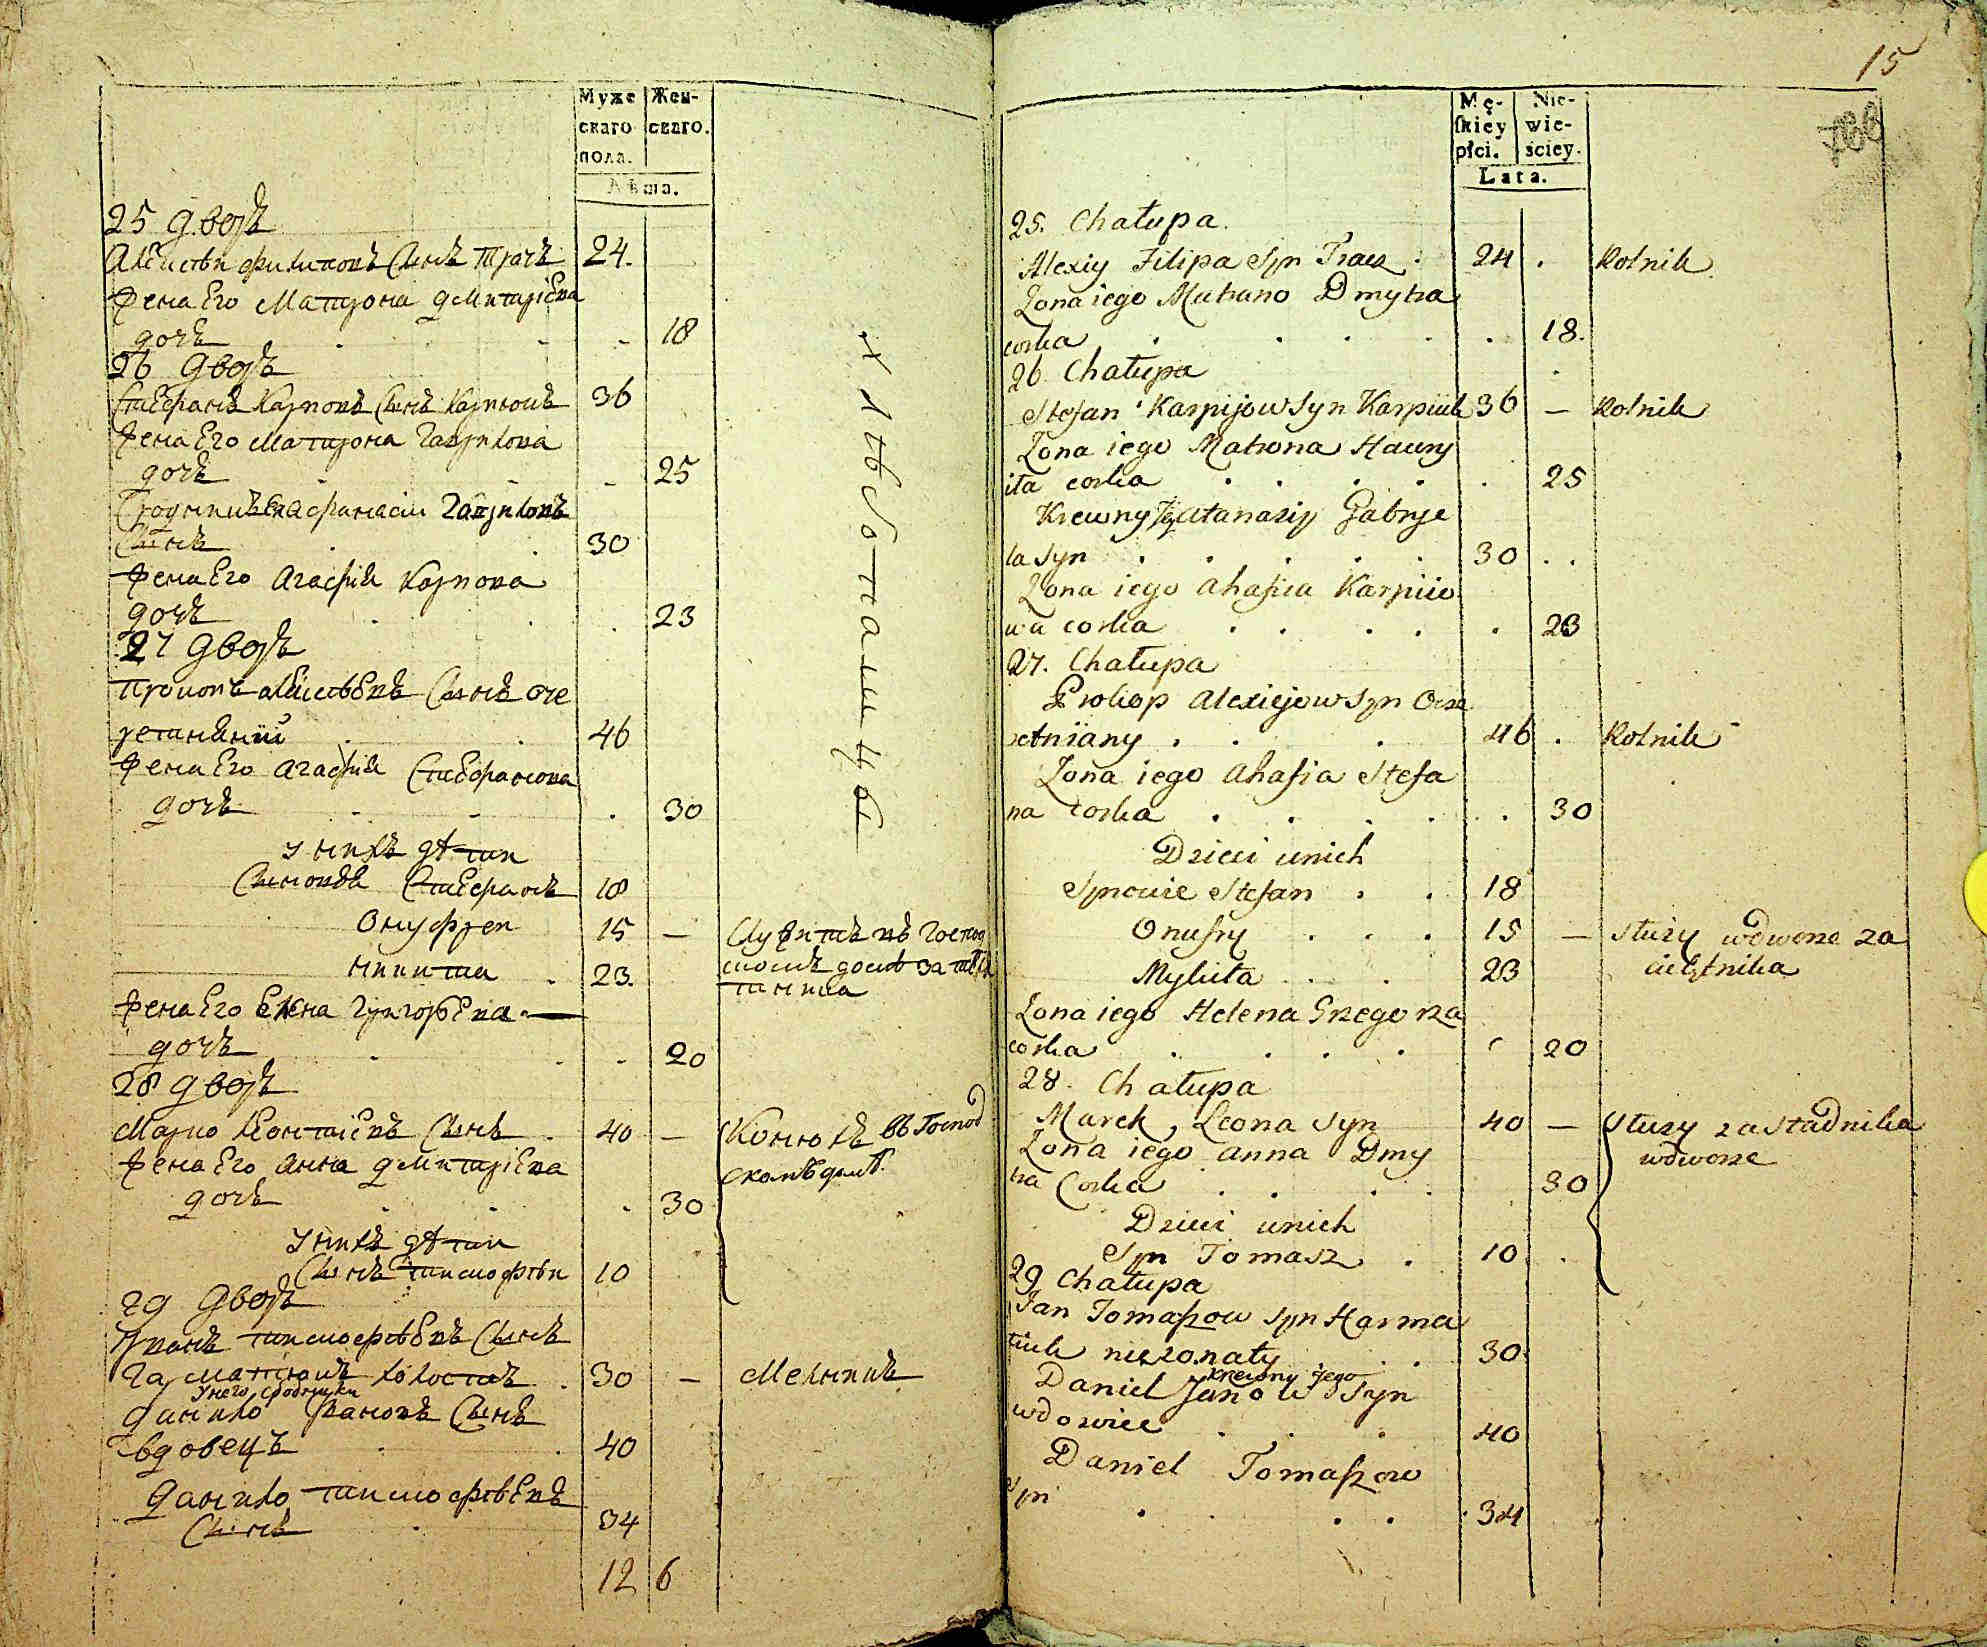 Муже
скаго
пола.
Жен-
скаго.
Лѣта.
25 дворъ
Алексѣй Филиповъ Сынъ Трачъ 24.
Жена Его Матрона Дмитріева
дочь 18
26 дворъ
Стефанъ Карповъ Сынъ Карпюкъ 36
Жена Его Матрона Гаврилова
дочь 25
Сродникъ Его Афанасій Гавриловъ
Сынъ 30
Жена Его Агафія Карпова
дочь 23
27 дворъ
Прокопъ Алексѣевъ Сынъ Оче
ретняный 46
Жена Его Агафія Стефанова
дочь 30
У нихъ дѣти
Сыновья Стефанъ 18
Онуфрей 15 —
Микита 23.
Служитъ въ Господ
скомъ домѣ за
Жена Его Елена Григорьева
дочь 20
28 дворъ
Марко Леонтіевъ Сынъ 40 —
Конюхъ въ Господ
скомъ домѣ.
Жена Его Анна Дмитріева
дочь 30
У нихъ дѣти
Сынъ Тимофѣй 10
29 дворъ
Иванъ Тимофѣевъ Сынъ
Гарматюкъ холостъ 30 — Мельникъ
У него сродники
Данило Ивановъ Сынъ
вдовецъ 40
Данило Тимофѣевъ
Сынъ 34
12 6
15
Mę-
ſkiey
płci.
Nie-
wie-
ściey.
Lata.
25. Chałupa.
Alexiy Filipa Syn Tracz 24 Rolnik
Żona iego Matrano Dmytra
corka 18.
26 Chałupa
Stefan Karpijow Syn Karpiuk 36 — Rolnik
Żona iego Matrona Hawry
iła corka 25
Krewny Jego Atanaziy Gabrye
la syn 30
Żona iego Ahafiia Karpiio
wa corka 23
27. Chałupa
Prokop Alexiejow Syn Ocze
retniany 46 Rolnik
Żona iego Ahafia Stefa
na Corka 30
Dzieci unich
Synowie Stefan 18
Onufry 15 — Służy wdworze za
Mykita 23
Żona iego Helena Grzegorza
corka 20
28. Chałupa
Marek, Leona syn 40 — Służy za Stadnika
wdworze
Żona iego Anna Dmy
tra Corka 30
Dzieci unich
Syn Tomasz 10
29 Chałupa
Jan Tomaſzow syn Harma
tiuk nieżonaty 30
krewny jego
Daniel Janow Syn
wdowiec 40
Daniel Tomaſzow
syn 34